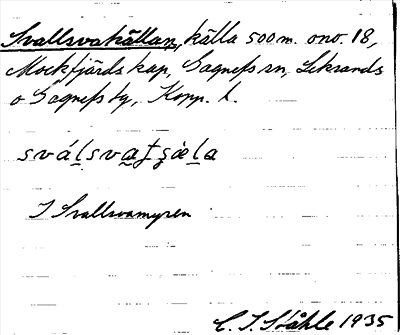 Svallsvakällan, källa 500 m. ono. 18,
Mockfjärds kap, Gagnefs sn, Leksands
o Gagnefs tg, Kopp. l.
I Svallsvamyren
C. I. Ståhle 1935